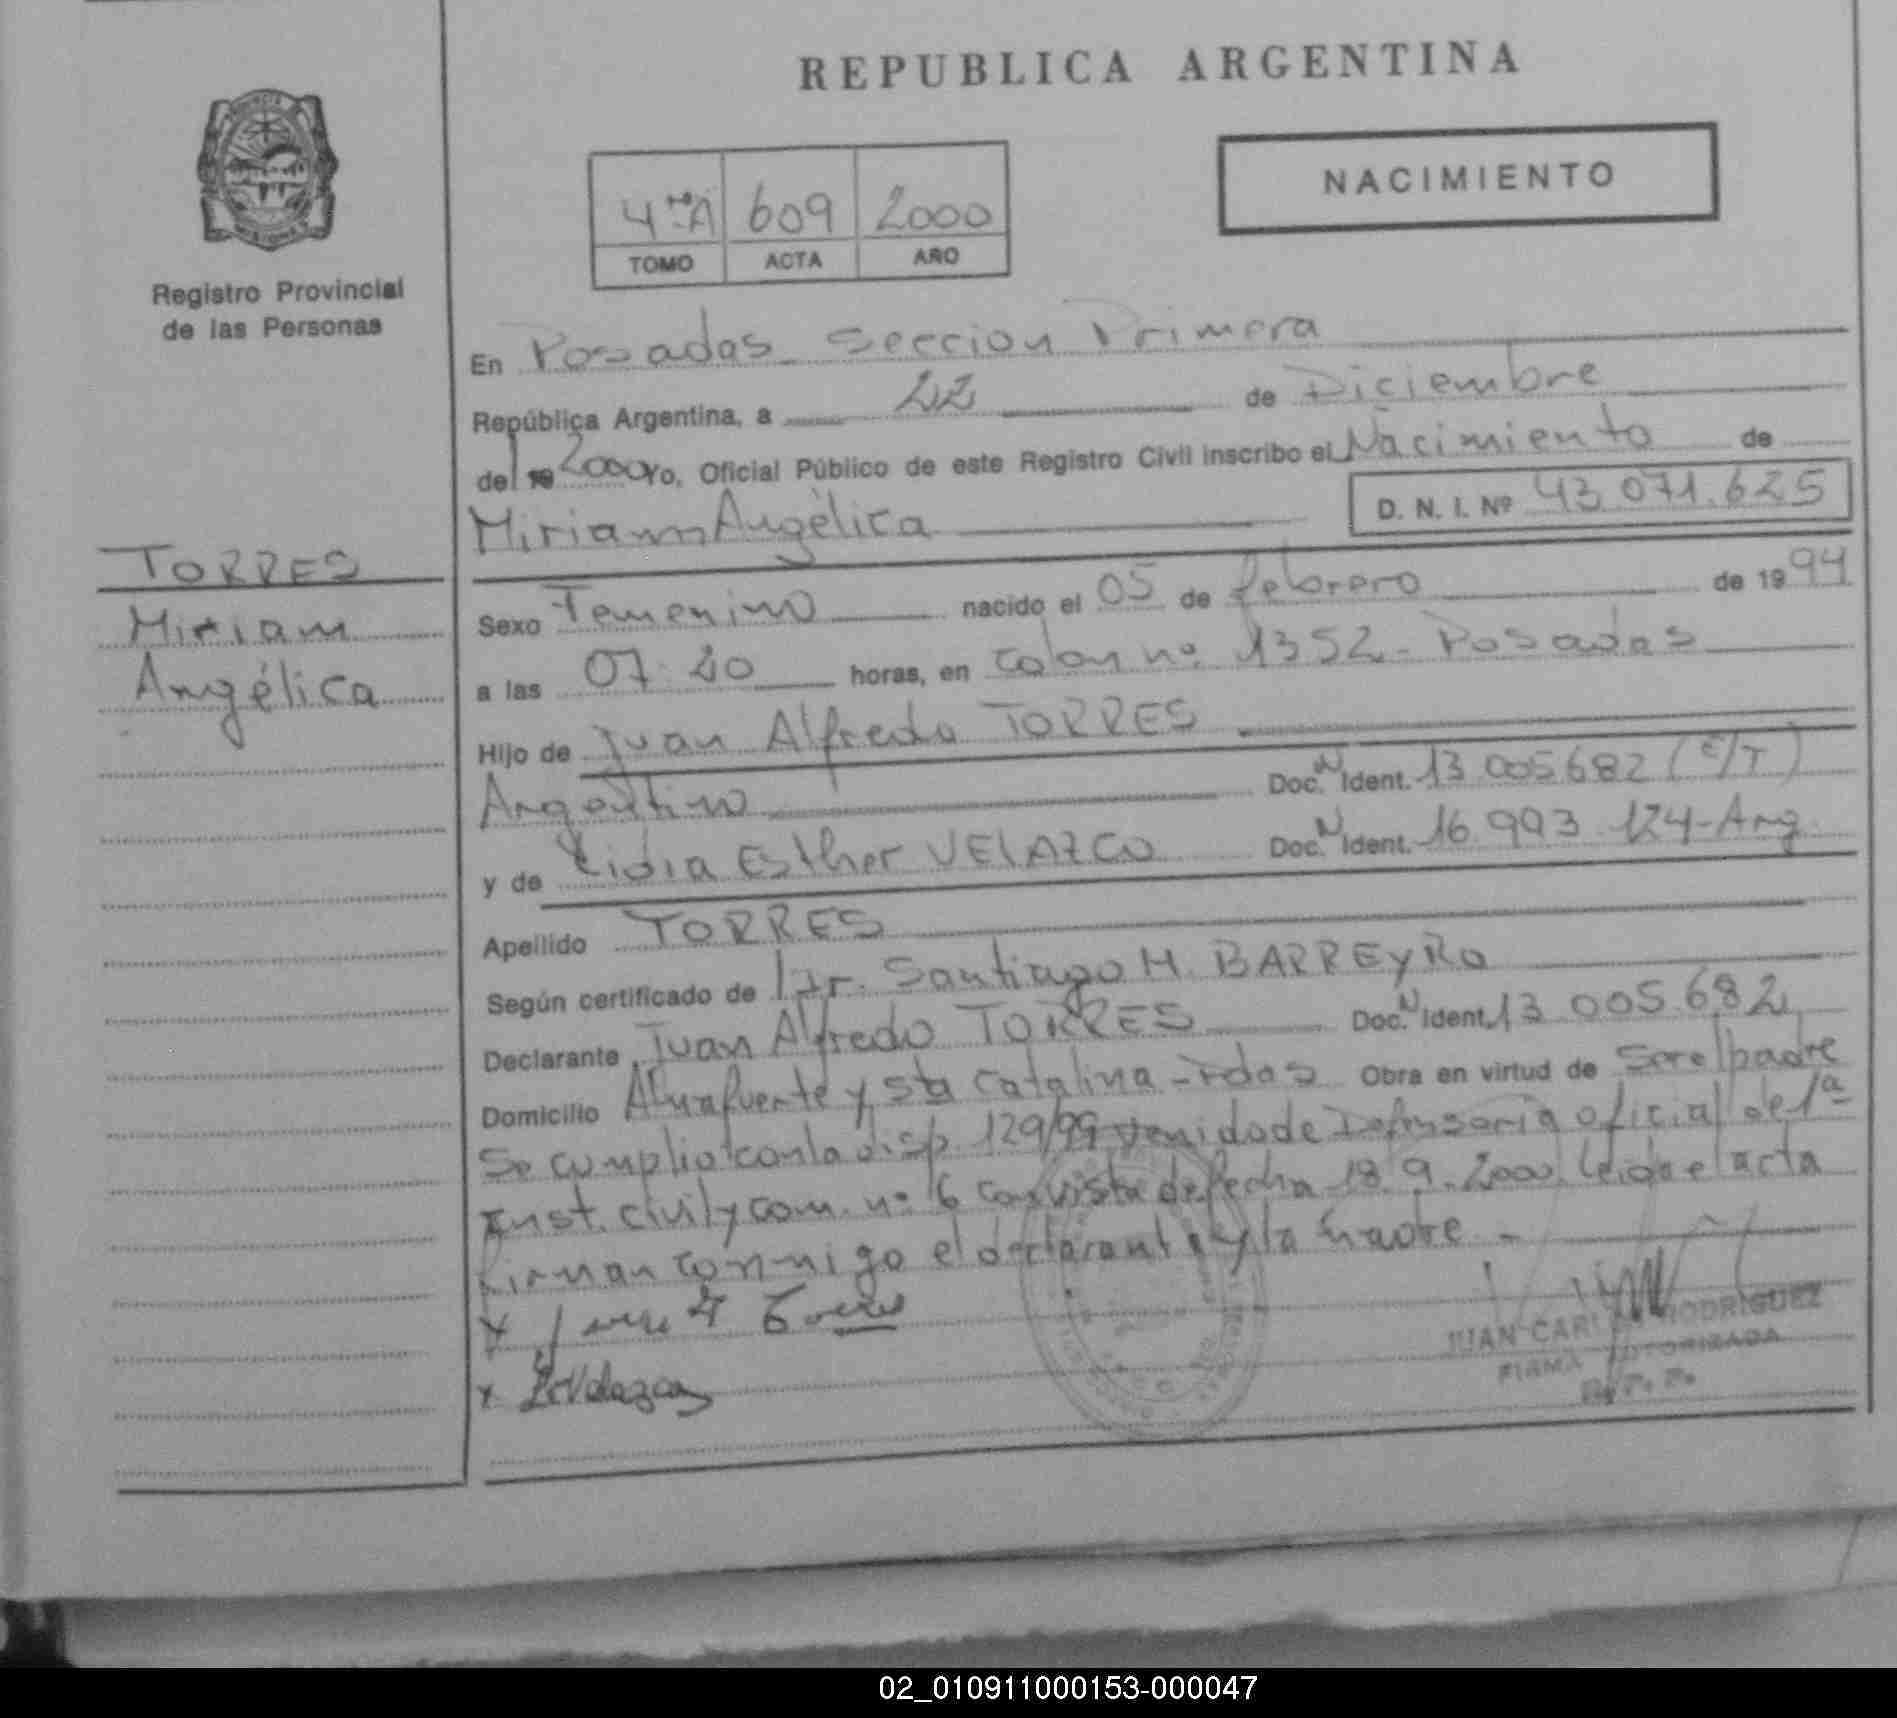 REPUBLICA ARGENTINA
NACIMIENTO
4to A 609 2000
TOMO ACTA AÑO
Registro Provincial
de las Personas
TORRES
Miriam
Angélica
En Posadas Seccion Primera
República Argentina, a 22 de Diciembre
del 19 2000 Yo, Oficial Público de este Registro Civil inscribo el Nacimiento de
Miriam Angélica D. N. I. Nº 43.071.625
Sexo Femenino nacido el 05 de febrero de 1994
a las 07.20 horas, en Colon nº 1352 - Posadas
Hijo de Juan Alfredo TORRES
Argentino Doc. N Ident. 13 005 682 (C/T)
y de Lidia Esther VELAZCO Doc. N Ident. 16 993 124 - Arg.
Apellido TORRES
Según certificado de Dr. Santiago H. BARREYRO
Declarante Juan Alfredo TORRES Doc. N Ident. 13 005.682
Domicilio y Sta Catalina - Pdas Obra en virtud de Ser el padre
Se cumplio con la disp. 129/99 venido de Defensoria oficial de 1ª
Inst. civil y com. nº 6 con vista de fecha 18.9.2000. Leida el acta
firman conmigo el declarante y la madre -
x
x Velazco
JUAN CARLOS RODRIGUEZ
FIRMA AUTORIZADA
R. P. P.
02_010911000153-000047